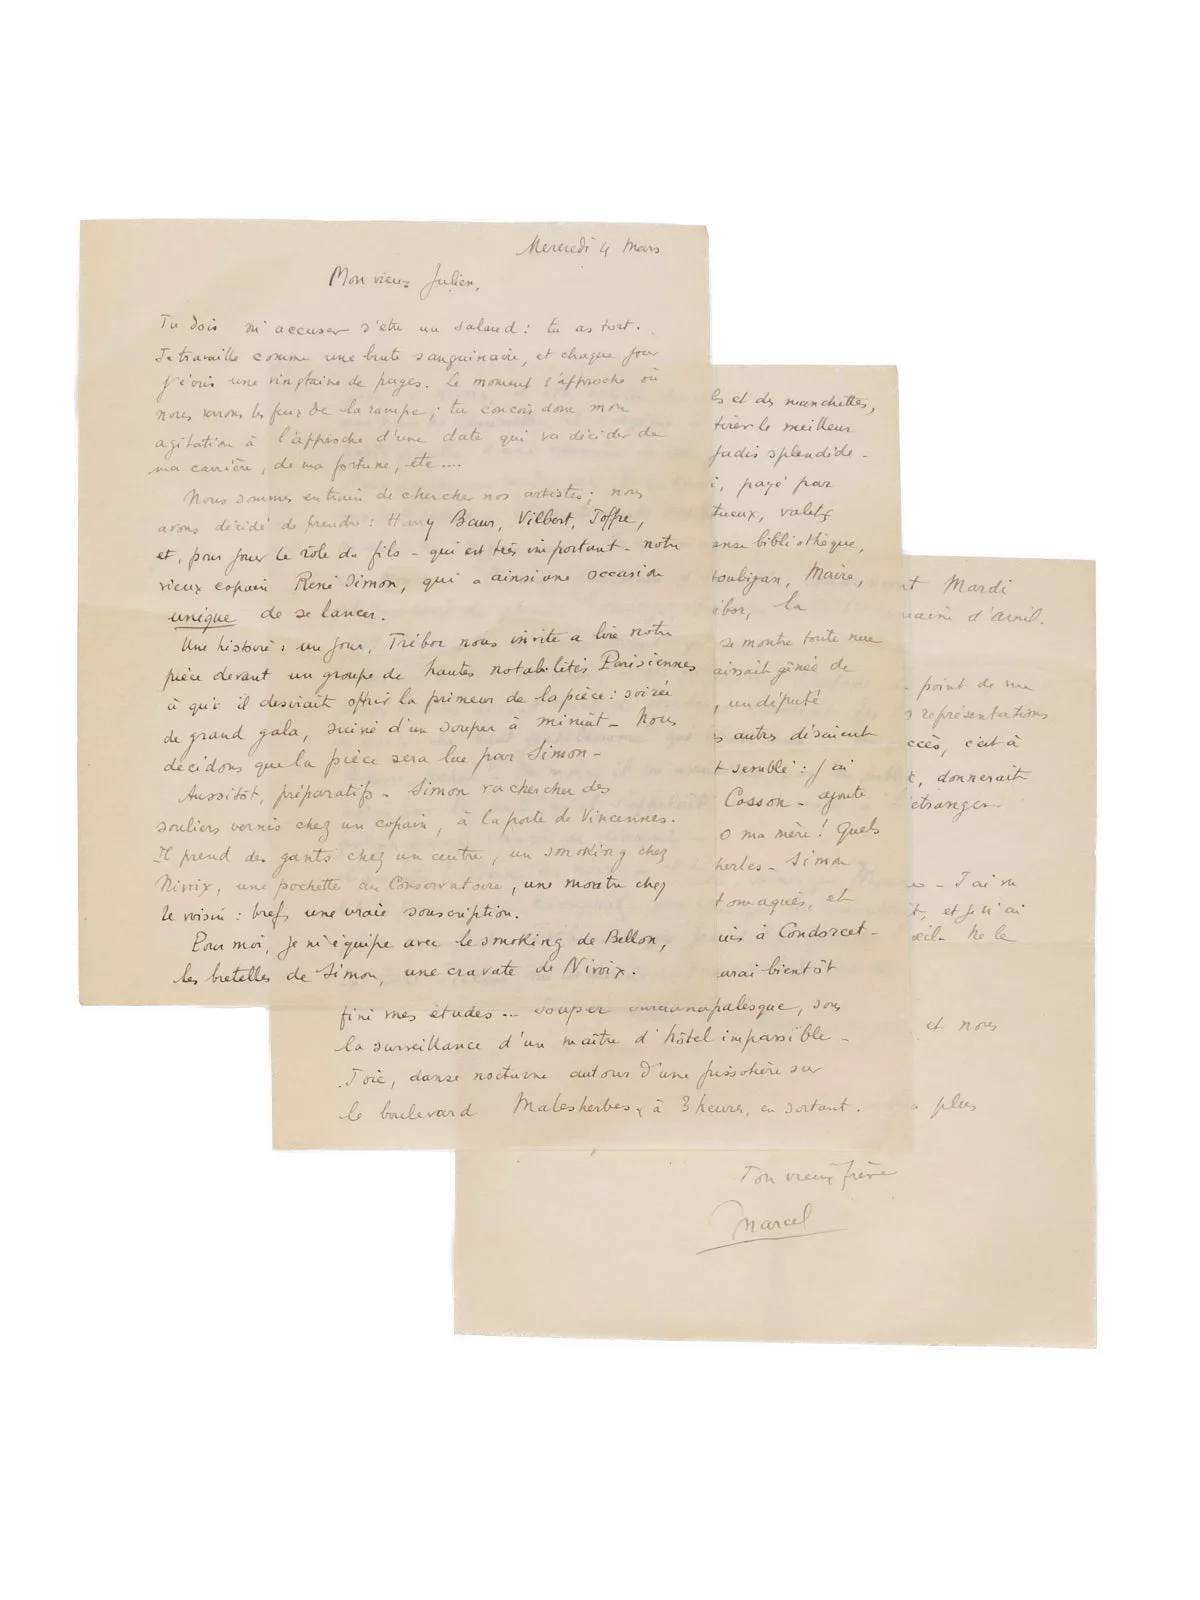 Mercredi 4 Mars
Mon vieux Julien,
Tu dois m'accuser d'être un salaud : tu as tort.
Je travaille comme une brute sanguinaire, et chaque jour
j'écris une vingtaine de pages. Le moment s'approche où
nous verrons les feux de la rampe ; tu conçois donc mon
agitation à l'approche d'une date qui va décider de
ma carrière, de ma fortune, etc....
Nous sommes en train de chercher nos artistes ; nous
avons décidé de prendre : Harry Baur, Vilbert, Joffre,
et, pour jouer le rôle du fils - qui est très important - notre
vieux copain René Simon, qui a ainsi une occasion
unique de se lancer.
Une histoire : un jour, Tribor nous invite a lire notre
pièce devant un groupe de hautes notabilités Parisiennes
à qui il desirait offrir la primeur de la pièce : soirée
de grand gala, suivie d'un souper à minuit - Nous
décidons que la pièce sera lue par Simon -
Aussitôt, préparatifs - Simon va chercher des
souliers vernis chez un copain, à la porte de Vincennes.
Il prend des gants chez un autre, un smoking chez
Nivoix, une pochette au Conservatoire, une montre chez
le voisin : bref, une vraie souscription.
Pour moi, je m'équipe avec le smoking de Bellon,
les bretelles de Simon, une cravate de Nivoix.
ls et des manchettes,
tirer le meilleur
jadis splendide -
i, payé par
tueux, valets
ense bibliothèque,
toubigan, Maire,
ibor, la
se montre toute nue
aissait gênée de
, un député
s autres disaient
t semblé : j'ai
Cosson - ajoute
O ma mère ! Quels
herbes - Simon
tomaqués, et
uis à Condorcet -
urai bientôt
fini mes études ... Souper sardanapalesque, sous
la surveillance d'un maître d'hôtel impassible -
Joie, danse nocturne autour d'une pissotière sur
le boulevard Malesherbes, à 3 heures, en sortant.
nt Mardi
uaine d'avril.
point de vue
s représentations
ccès, c'est à
, donnerait
étranger -
- J'ai vu
t, et je n'ai
oeil - Ne le
et nous
a plus
Ton vieux frère
Marcel